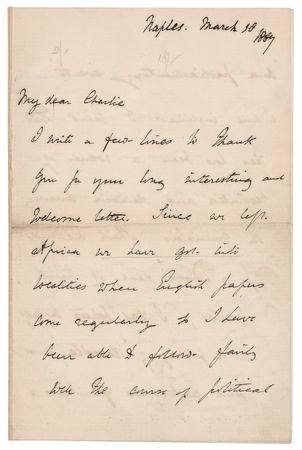 Naples. March 30
1887
My dear Charlie
I write a few lines to thank
you for your long interesting and
welcome letter. Since we left
Africa we have got into
localities where English papers
come regularly so I have
been able to follow fairly
well the course of political